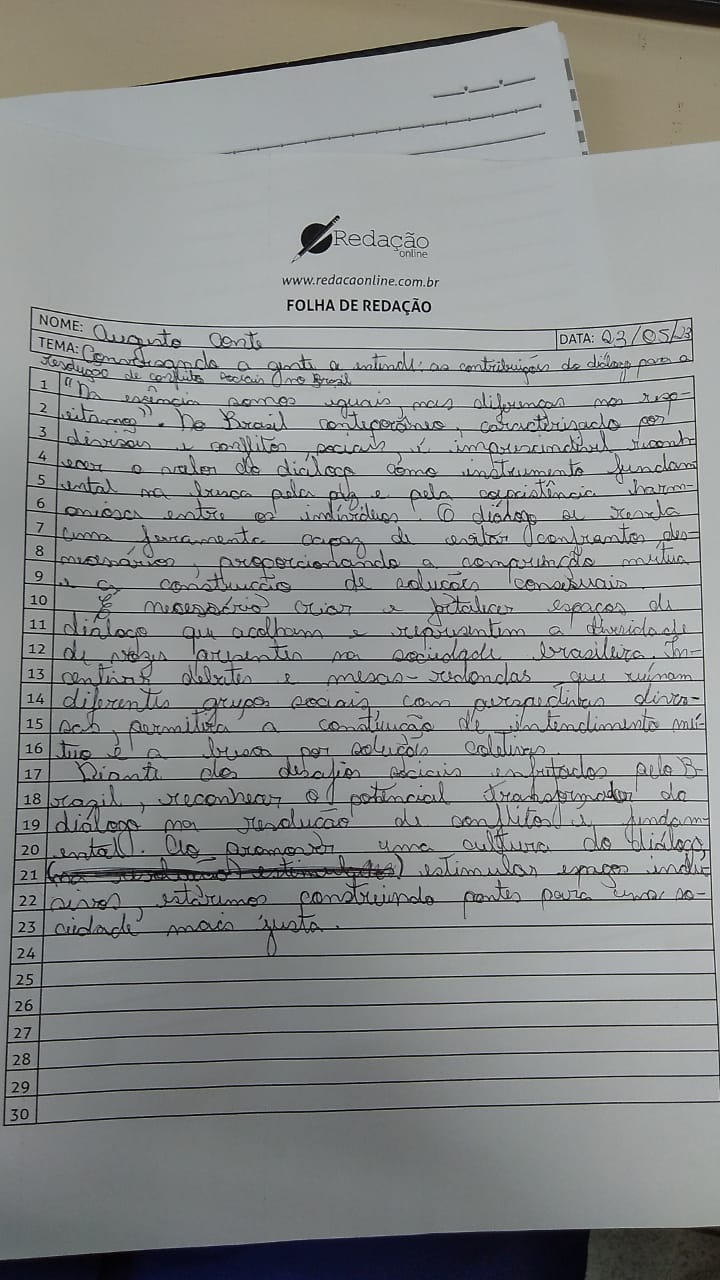 Redação
online
www.redacaonline.com.br
FOLHA DE REDAÇÃO
NOME: Augusto Conte
DATA: 23/05/23
TEMA: Conversando a gente se entende: as contribuições do diálogo para a
resolução de conflitos sociais no Brasil
1 "Na essência somos iguais, nas diferenças nos resp-
2 eitamos". No Brasil conteporâneo, caracterizado por
3 divisões e conflitos sociais, é imprescindível reconh
4 ecer o valor do diálogo como instrumento fundam
5 ental na busca pela paz e pela coexistência harm-
6 oniosa entre os indivídeos. O diálogo se revela
7 uma ferramenta capaz de evitar confrontos des-
8 necessários, proporcionando a compreensão mutua
9 e a construcão de soluções consensuais.
10 É necessário criar e fortalecer espaços de
11 diálogo que acolham e representem a diversidade
12 de vozes presentes na sociedade brasileira. In-
13 centivar debates e mesas-redondas que reúnam
14 diferentes grupos sociais, com perspectivas diver-
15 sas, permitira a construção de entendimento mú-
16 tuo e a busca por soluções coletivas.
17 Diante dos desafios sociais enfretados pelo B-
18 razil, reconhecer o potencial transformador do
19 diálogo na resolução de conflitos é fundam
20 ental. Ao promover uma cultura do diálogo,
21 estimular espaços inclu
22 sivos, estaremos construindo pontes para uma so-
23 ciedade mais justa.
24
25
26
27
28
29
30